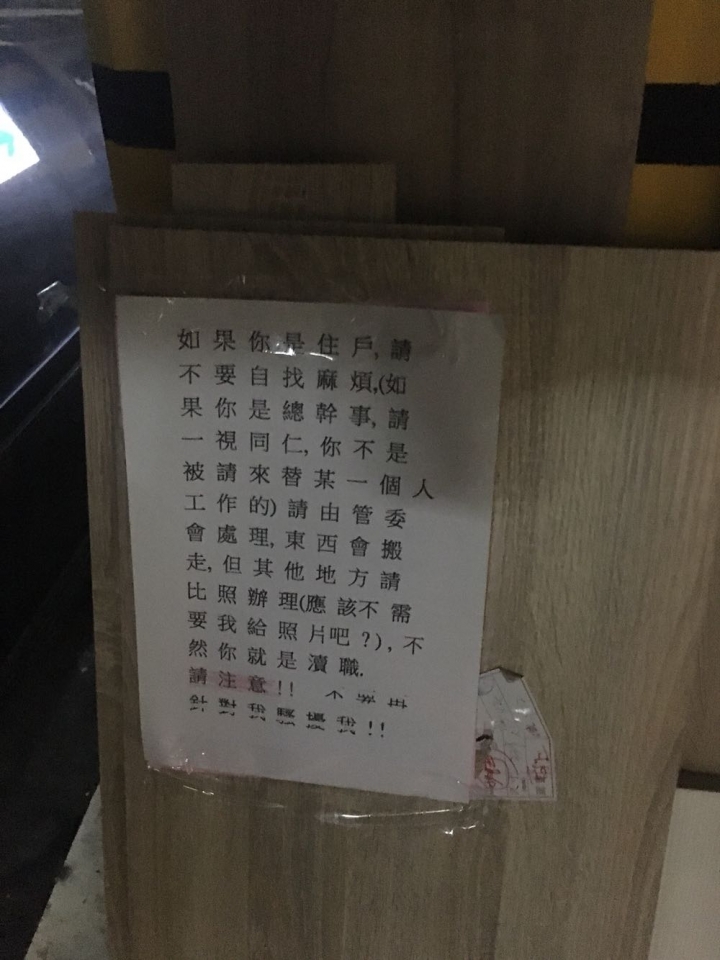 如果你是住戶,請
不要自找麻煩,(如
果你是總幹事,請
一視同仁,你不是
被請來替某一個人
工作的)請由管委
會處理,東西會搬
走,但其他地方請
比照辦理(應該不需
要我給照片吧?),不
然你就是瀆職.
請注意!! 不
針對我騷擾我!!